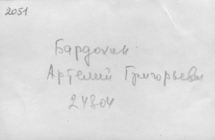 2051
Бардохев
Артемий Григорьевич
24304